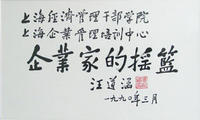 上海经济管理干部学院
上海企业管理培训中心
企業家的摇籃
汪道涵
一九九〇年三月